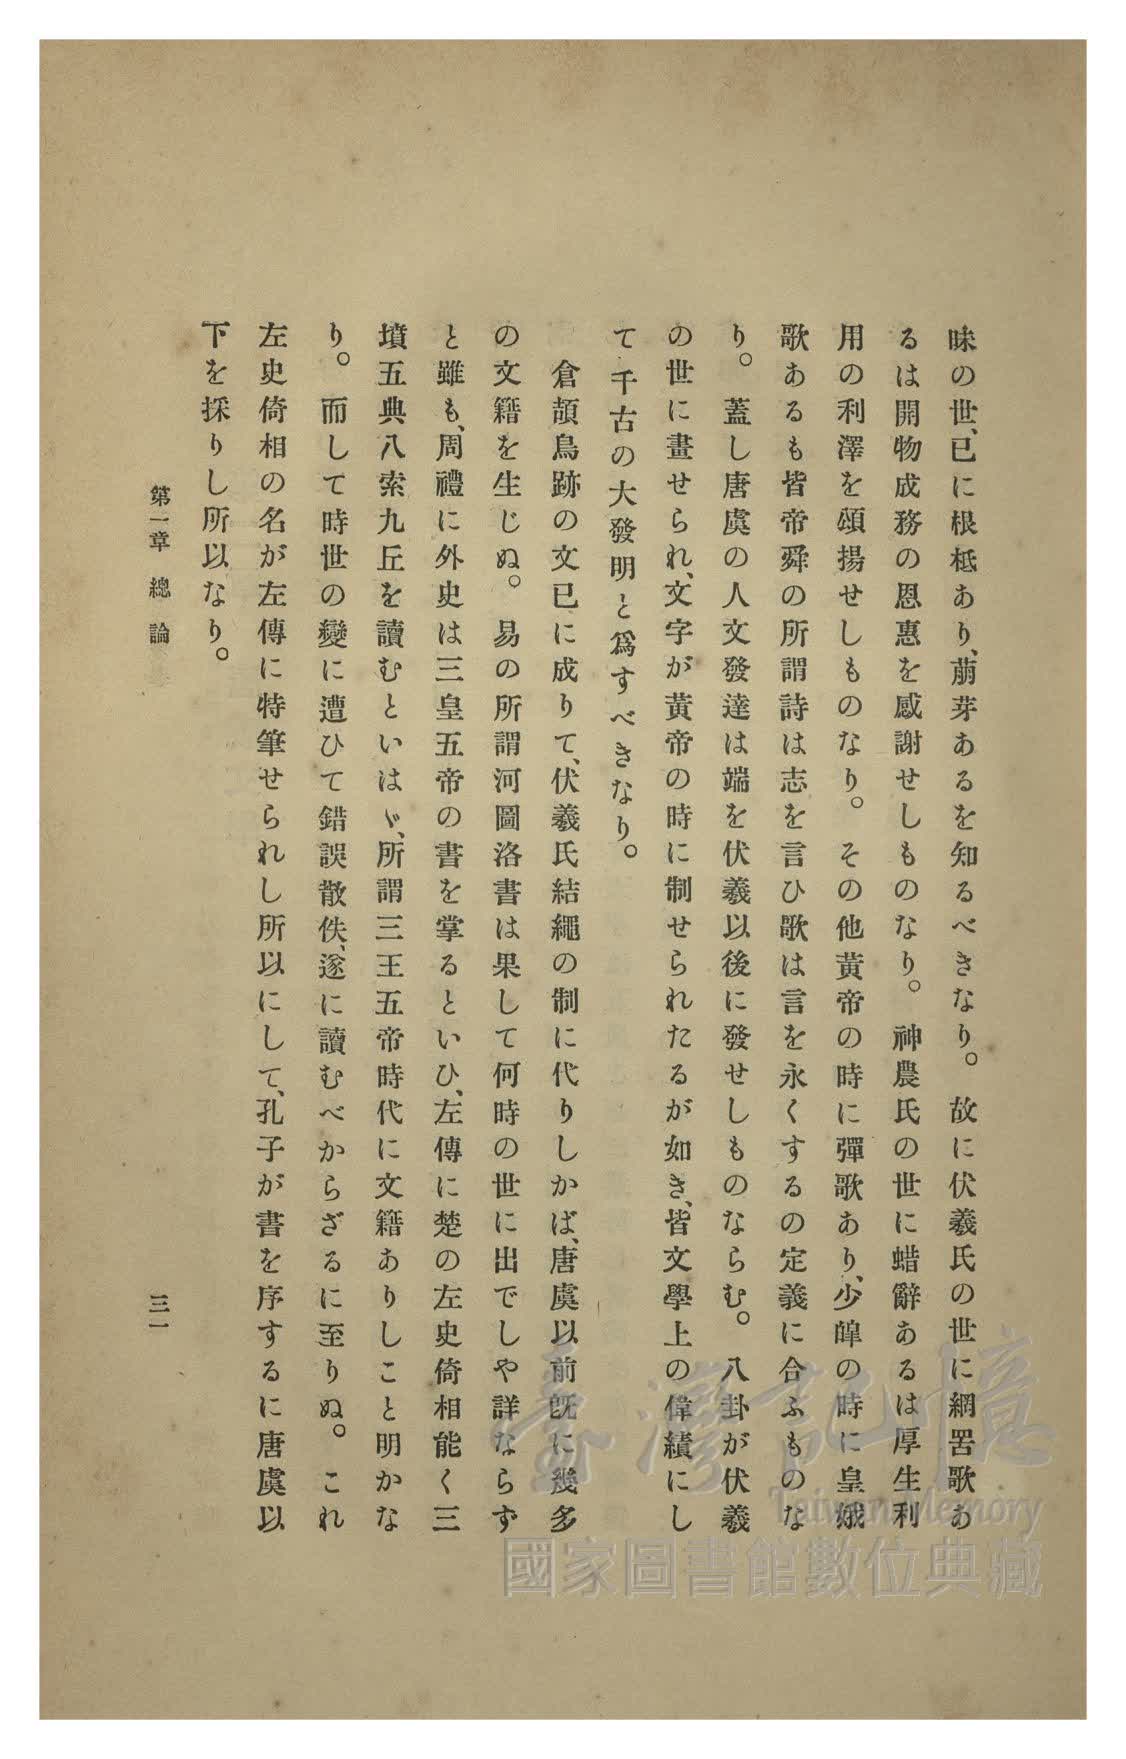 昧の世、已に根柢あり、萠芽あるを知るべきなり。故に伏羲氏の世に網罟歌あ
るは開物成務の恩惠を感謝せしものなり。神農氏の世に蜡辭あるは厚生利
用の利澤を頌揚せしものなり。その他黃帝の時に彈歌あり、少皥の時に皇娥
歌あるも皆帝舜の所謂詩は志を言ひ歌は言を永くするの定義に合ふものな
り。蓋し唐虞の人文發達は端を伏羲以後に發せしものならむ。八卦が伏羲
の世に畫せられ、文字が黃帝の時に制せられたるが如き、皆文學上の偉績にし
て千古の大發明と爲すべきなり。
倉頡鳥跡の文已に成りて、伏羲氏結繩の制に代りしかば、唐虞以前旣に幾多
の文籍を生じぬ。易の所謂河圖洛書は果して何時の世に出でしや詳ならず
と雖も、周禮に外史は三皇五帝の書を掌るといひ、左傳に楚の左史倚相能く三
墳五典八索九丘を讀むといはゞ、所謂三王五帝時代に文籍ありしこと明かな
り。而して時世の變に遭ひて錯誤散佚、遂に讀むべからざるに至りぬ。これ
左史倚相の名が左傳に特筆せられし所以にして、孔子が書を序するに唐虞以
下を採りし所以なり。
第一章 總論
三一
臺灣記憶
Taiwan Memory
國家圖書館數位典藏